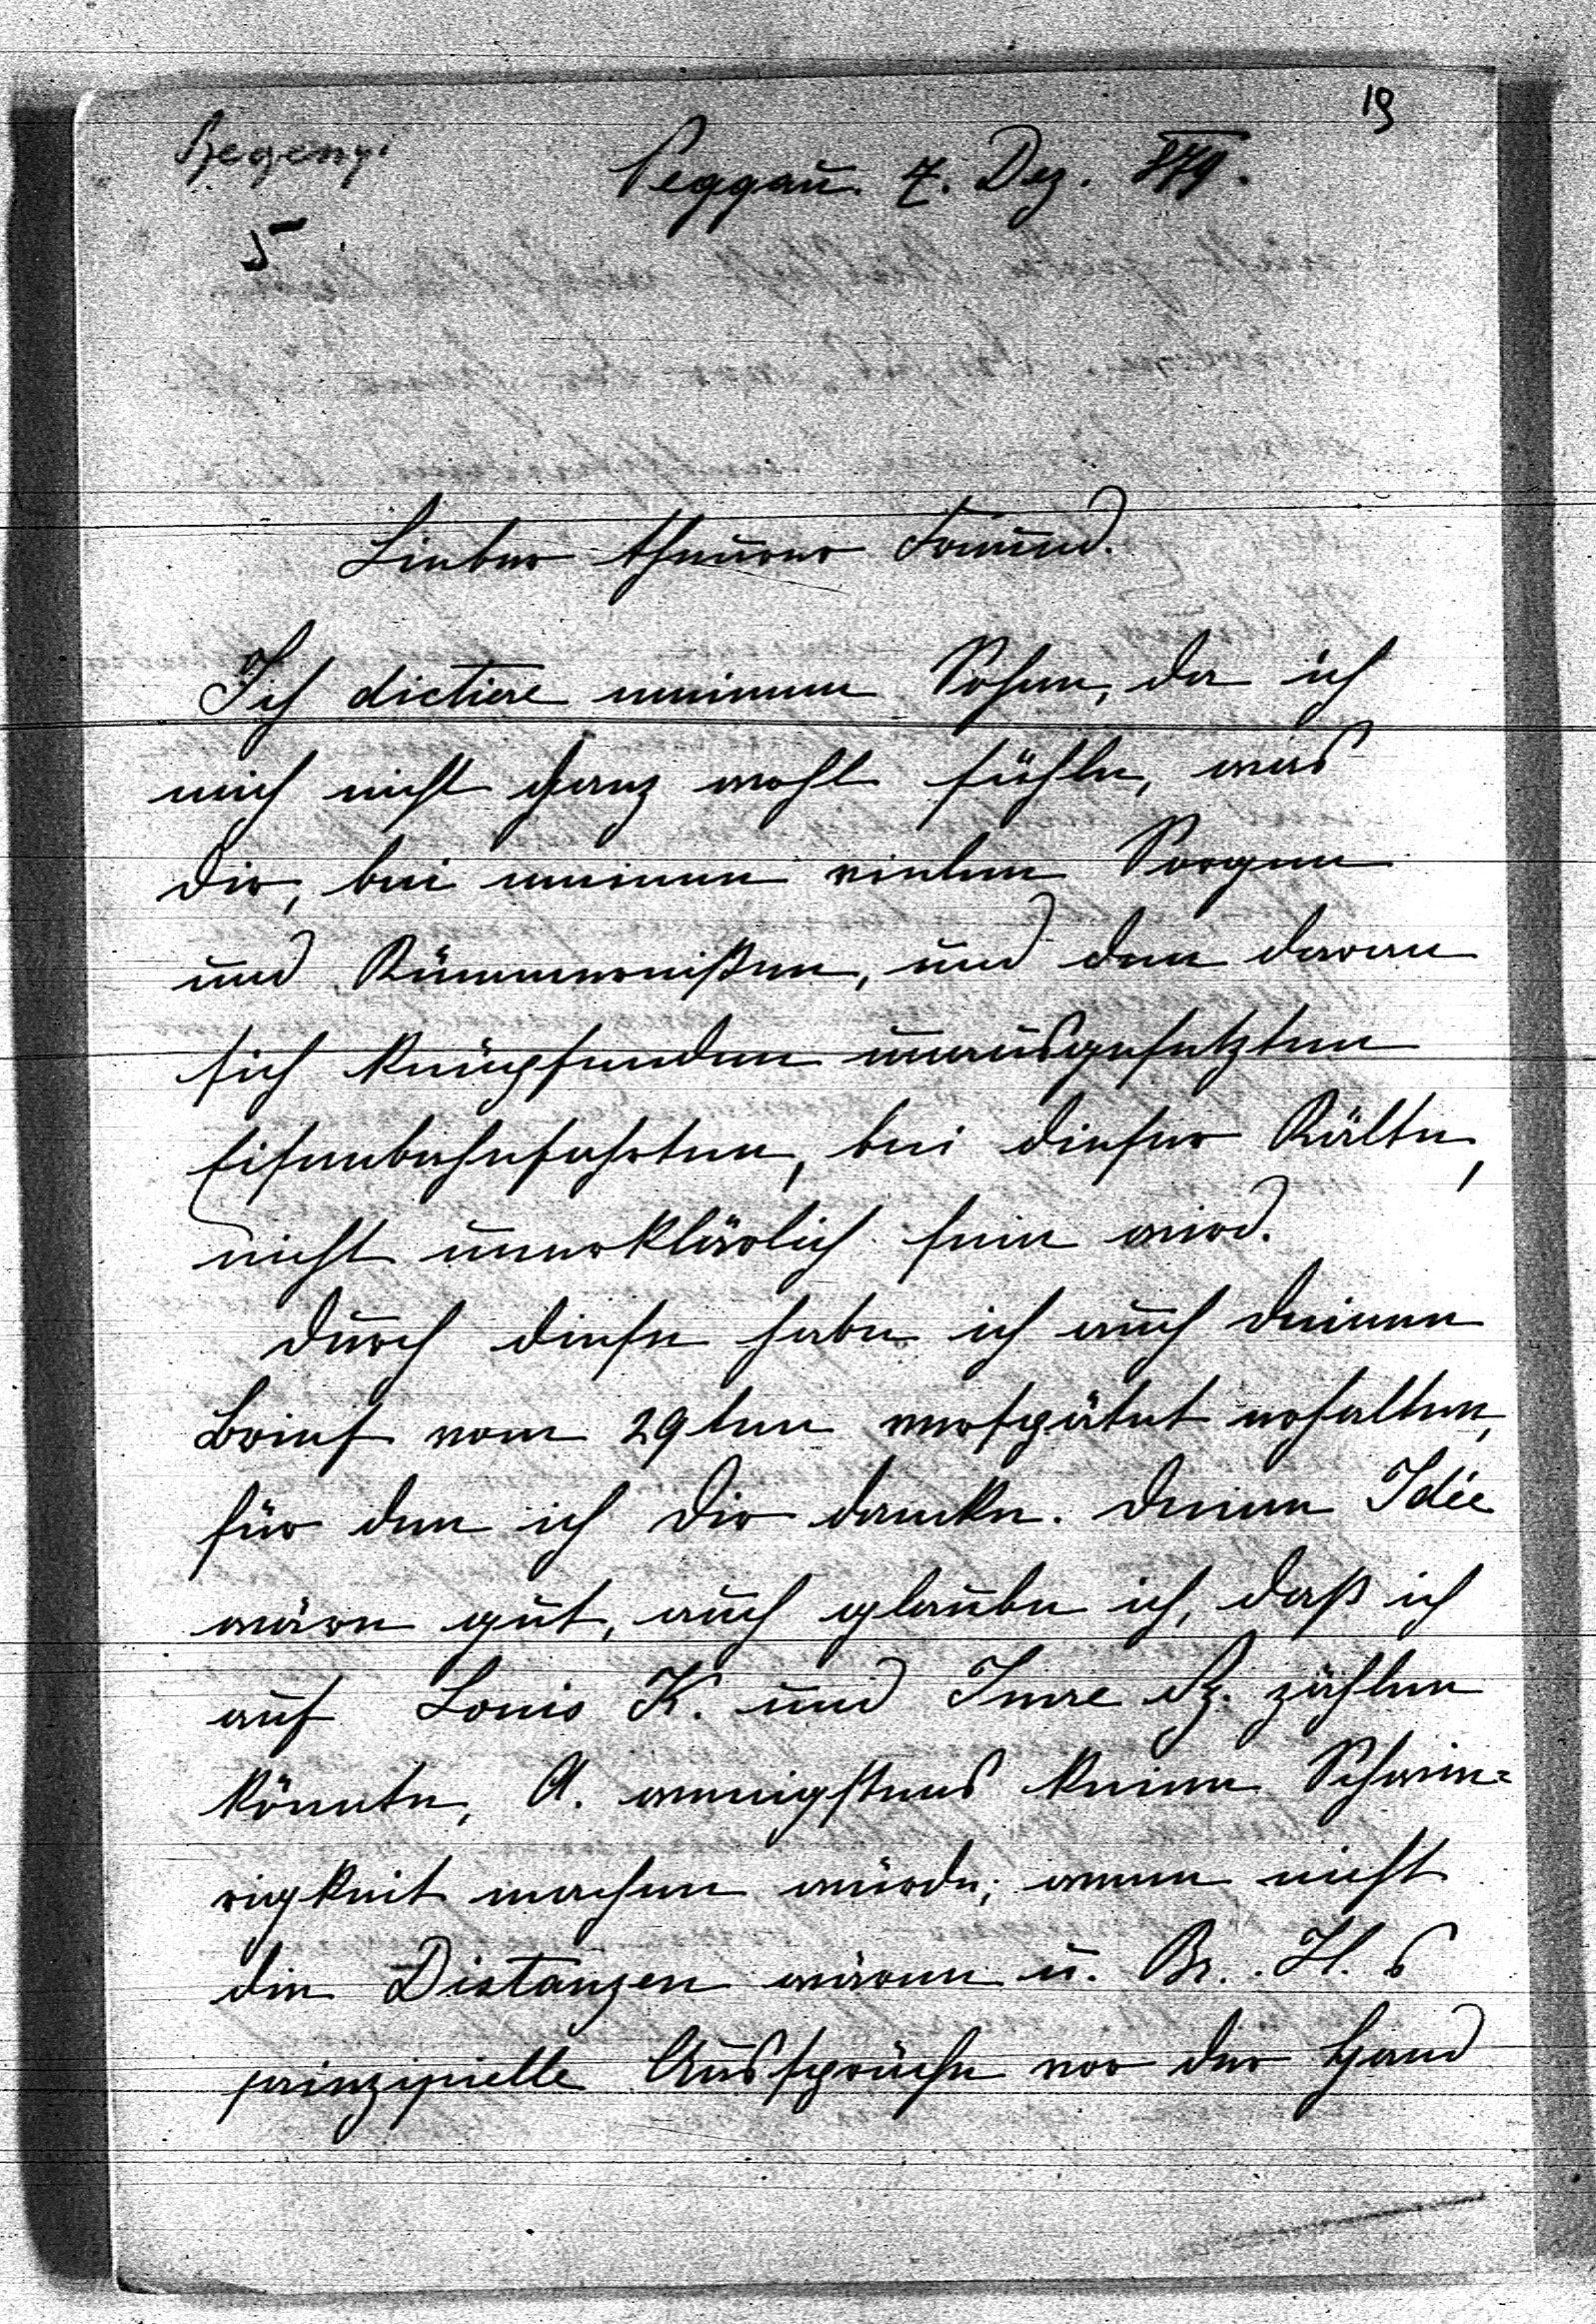 19
Regenyi
Peggau. 7. Dez. 879.
5
Lieber theurer Freund.
Ich dictiere meinem Sohne, da ich
mich nicht ganz wohl fühle, was
Dir, bei meinen vielen Sorgen
und Kümmernißen, und den daran
sich knüpfenden unausgesetzten
Eisenbahnfahrten, bei dieser Kälte,
nicht unerklärlich sein wird.
Durch diese habe ich auch Deinen
Brief vom 29ten verspätet erhalten,
für den ich Dir danke. Deine Idée
wäre gut, auch glaube ich, daß ich
auf Louis K. und Imre Sz. zählen
könnte, A. wenigstens keine Schwie-
rigkeit machen würde; wenn nicht
die Distanzen wären u. Br. H. s
prinzipielle Aussprüche vor der Hand